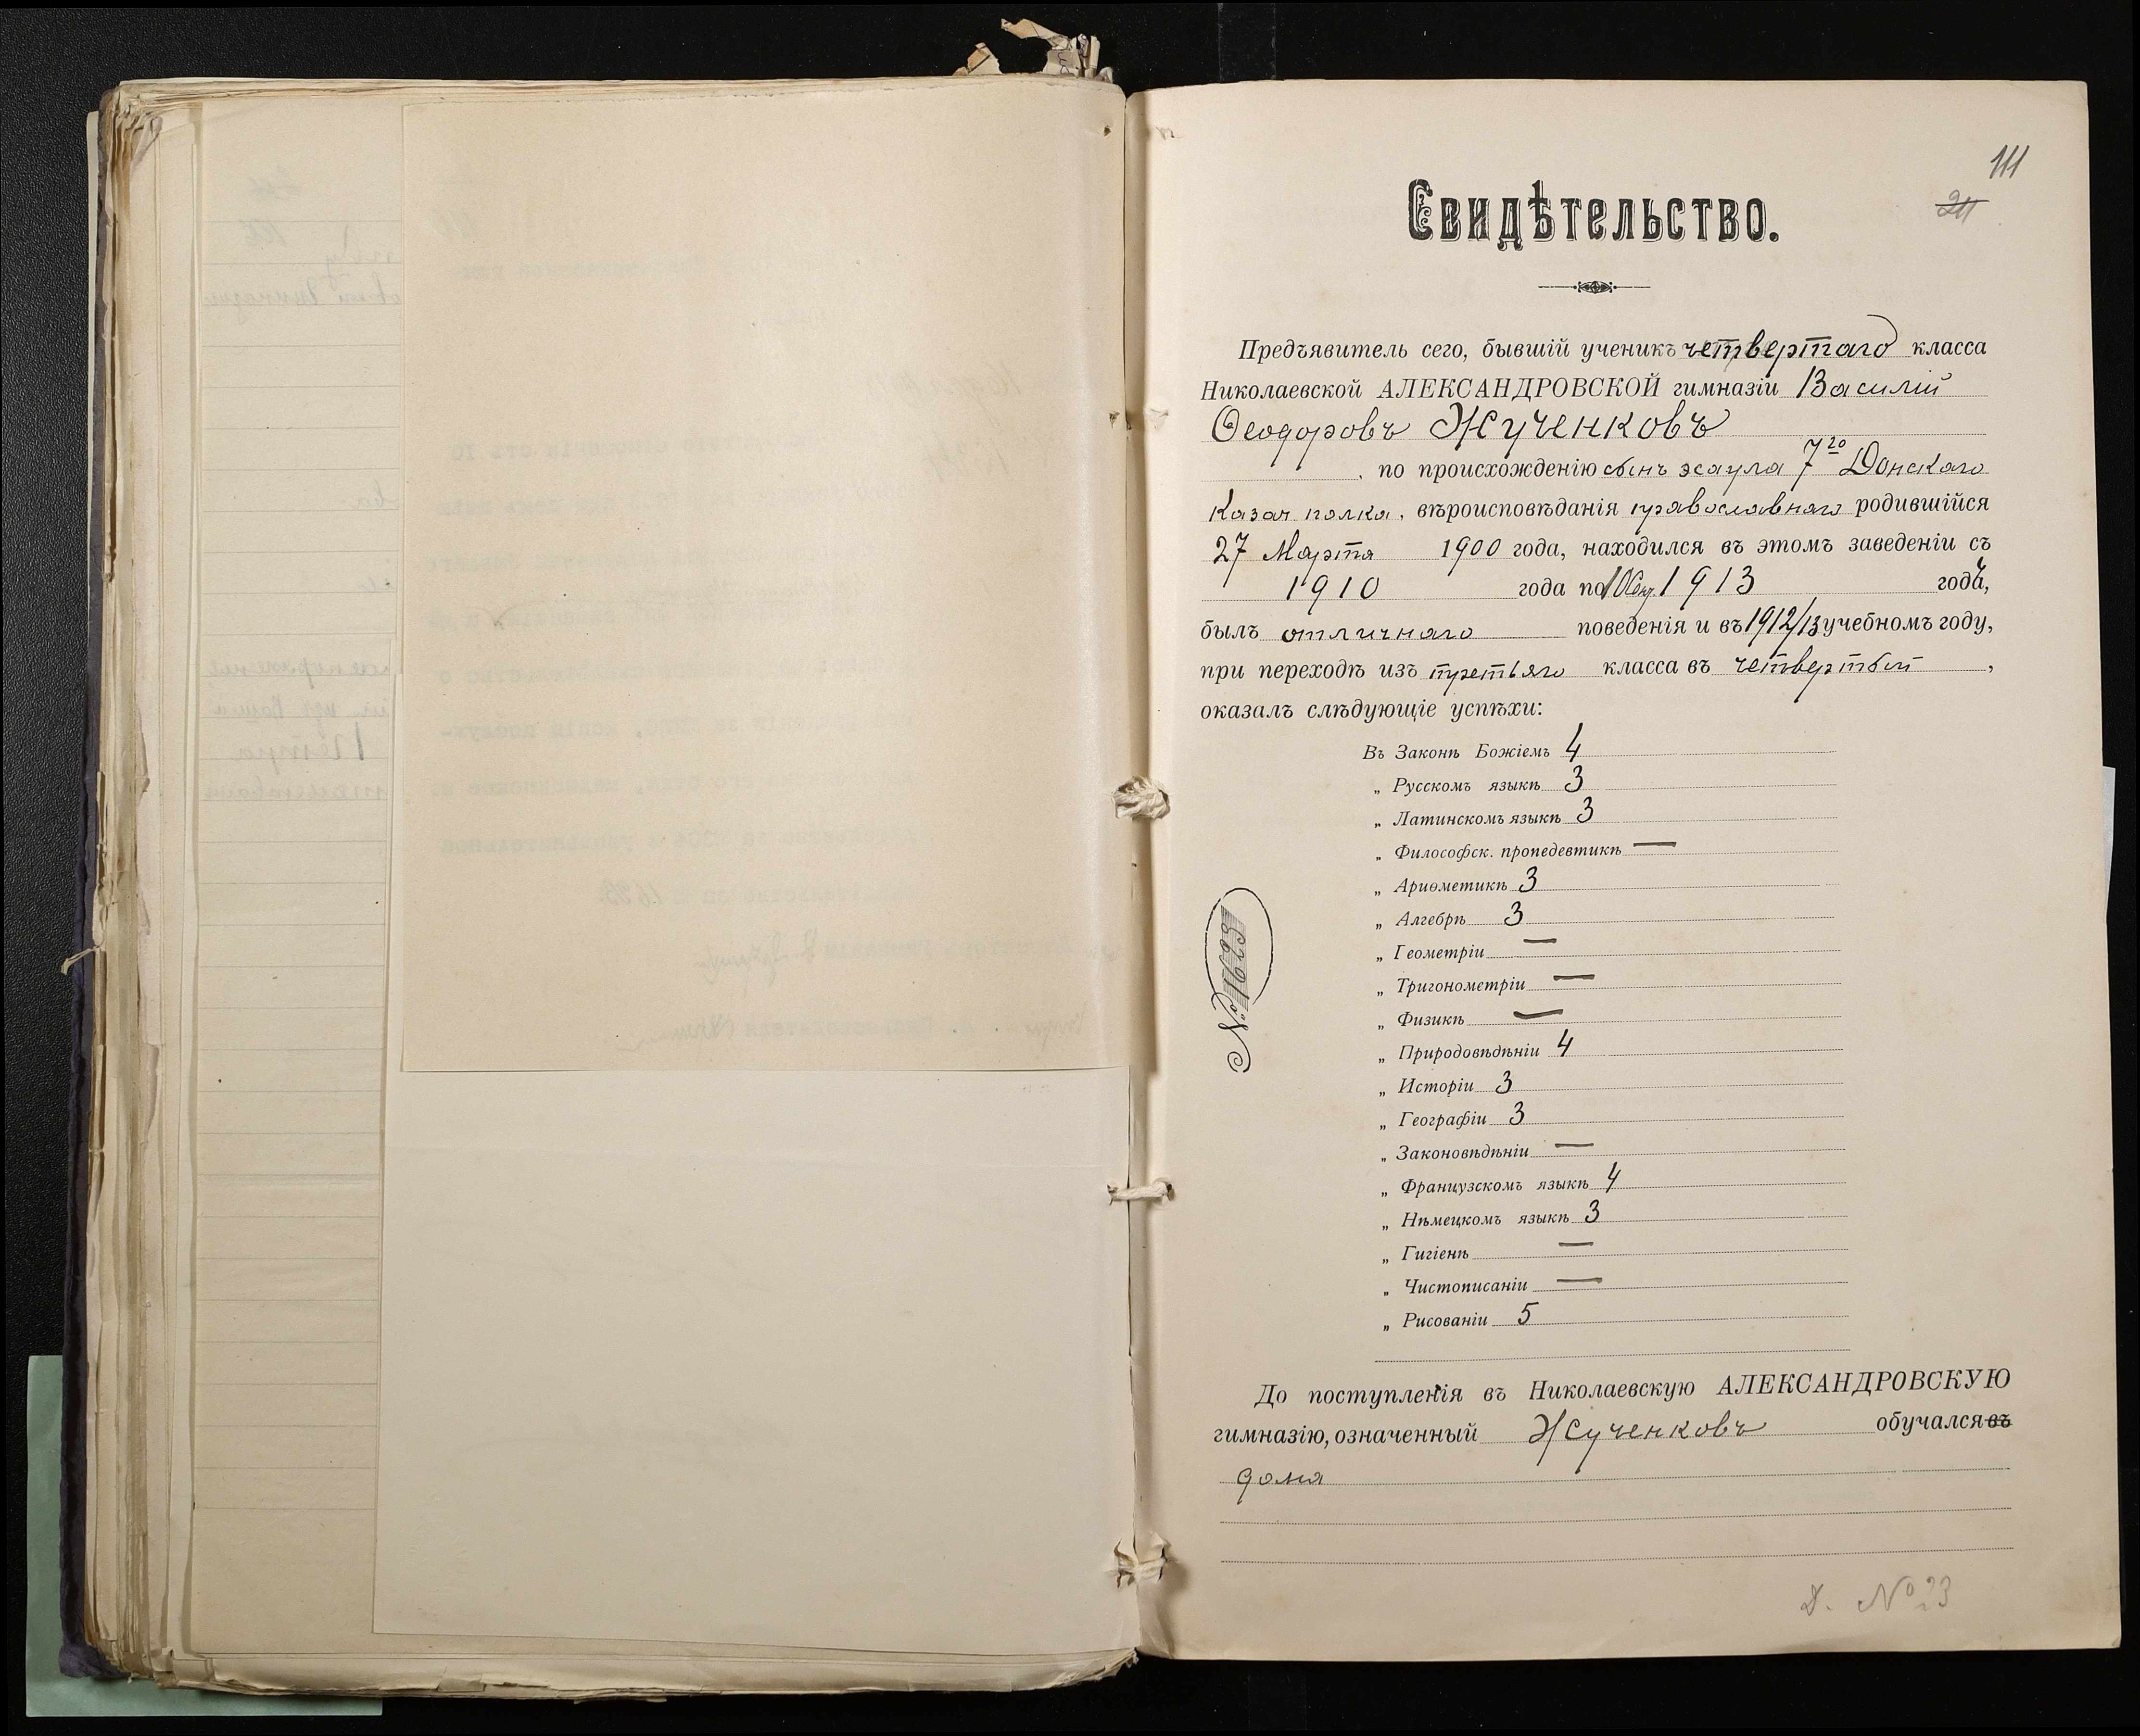 111
211
Свидѣтельство.
Предъявитель сего, бывшій ученикъ четвертаго класса
Николаевской АЛЕКСАНДРОВСКОЙ гимназіи Василій
Ѳеодоровъ Жученковъ
, по происхожденію сынъ эсаула 7го Донскаго
Казач. полка, вѣроисповѣданія православнаго родившійся
27 Марта 1900 года, находился въ этомъ заведеніи съ
1910 года по 1913 года,
былъ отличнаго поведенія и въ 1912/13 учебномъ году,
при переходѣ изъ третьяго класса въ четвертый,
оказалъ слѣдующіе успѣхи:
Въ Законѣ Божіемъ 4
„ Русскомъ языкѣ 3
„ Латинскомъ языкѣ 3
„ Философск. пропедевтикѣ —
„ Ариѳметикѣ 3
„ Алгебрѣ 3
„ Геометріи —
„ Тригонометріи —
„ Физикѣ —
„ Природовѣдѣніи 4
„ Исторіи 3
„ Географіи 3
„ Законовѣдѣніи —
„ Французскомъ языкѣ 4
„ Нѣмецкомъ языкѣ 3
„ Гигіенѣ —
„ Чистописаніи —
„ Рисованіи 5
№ 1623
До поступленія въ Николаевскую АЛЕКСАНДРОВСКУЮ
гимназію, означенный Жученковъ обучался въ
дома
Д. № 23